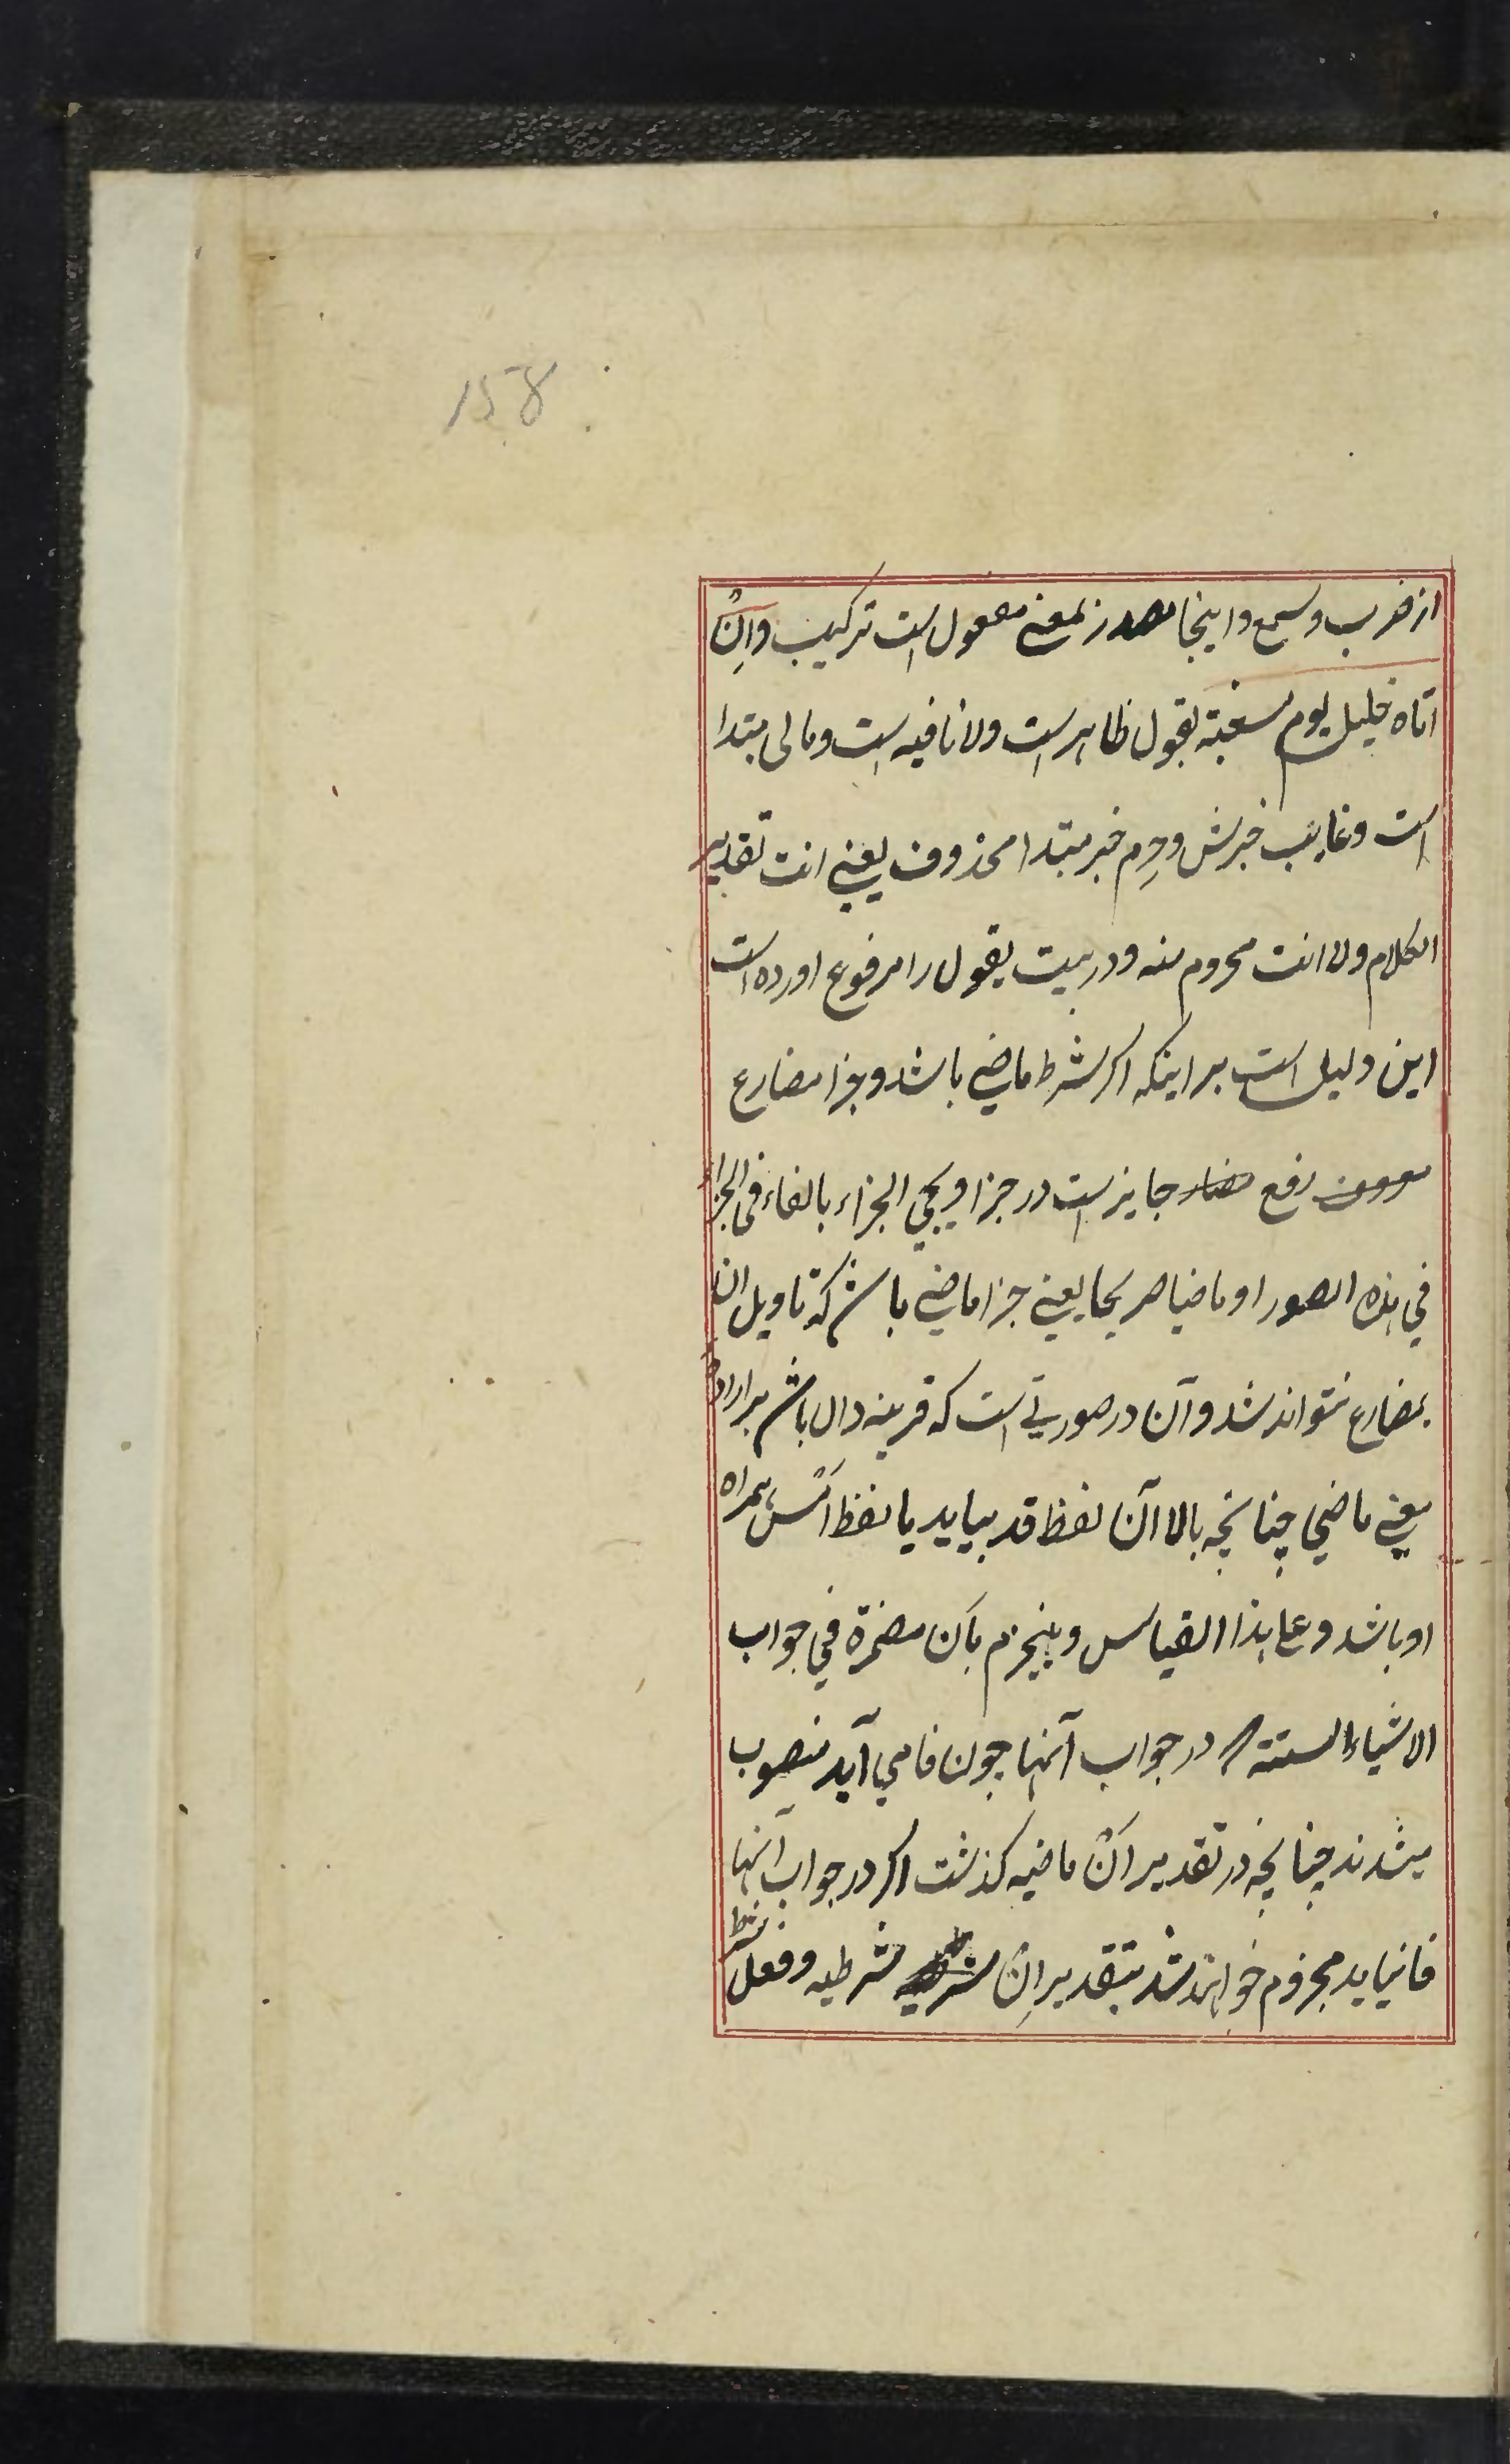 158
از ضرب و سمع و اینجا مصدر بمعنی مفعول است ترکیب وَاِنْ
اتاه خلیل یوم مسغبة یقول ظاهر است ولا نافیه است و مالی مبتدا
است و غایب خبرش و حِرِم خبر مبتدا محذوف یعنی انت تقدیر
الکلام ولا انت محروم منه و در بیت یقول را مرفوع اورده است
این دلیل است بر اینکه اکر شرط ماضی باشد و جزا مضارع
رفع جایز است در جزا ویجی الجزاء بالفاء فی الجزاء
فی هذه الصور او ماضیا صریحا یعنی جزا ماضی باشد که تاویل ان
بمضارع نتواند شد و آن در صورتی است که قرینه دال باشد بر اراده
معنی ماضی چنانچه بالا آن لفظ قد بیاید یا لفظ امس همراه
او باشد و علی هذا القیاس وینجزم بِاَن مضمرة فی جواب
الاشیاء الستة در جواب آنها چون فا می آید منصوب
میشدند چنانچه در تقدیر اَنْ ماضیه کذشت اکر در جواب آنها
فا نیاید مجزوم خواهند شد بتقدیر اِنْ شرطیه و فعل شرط